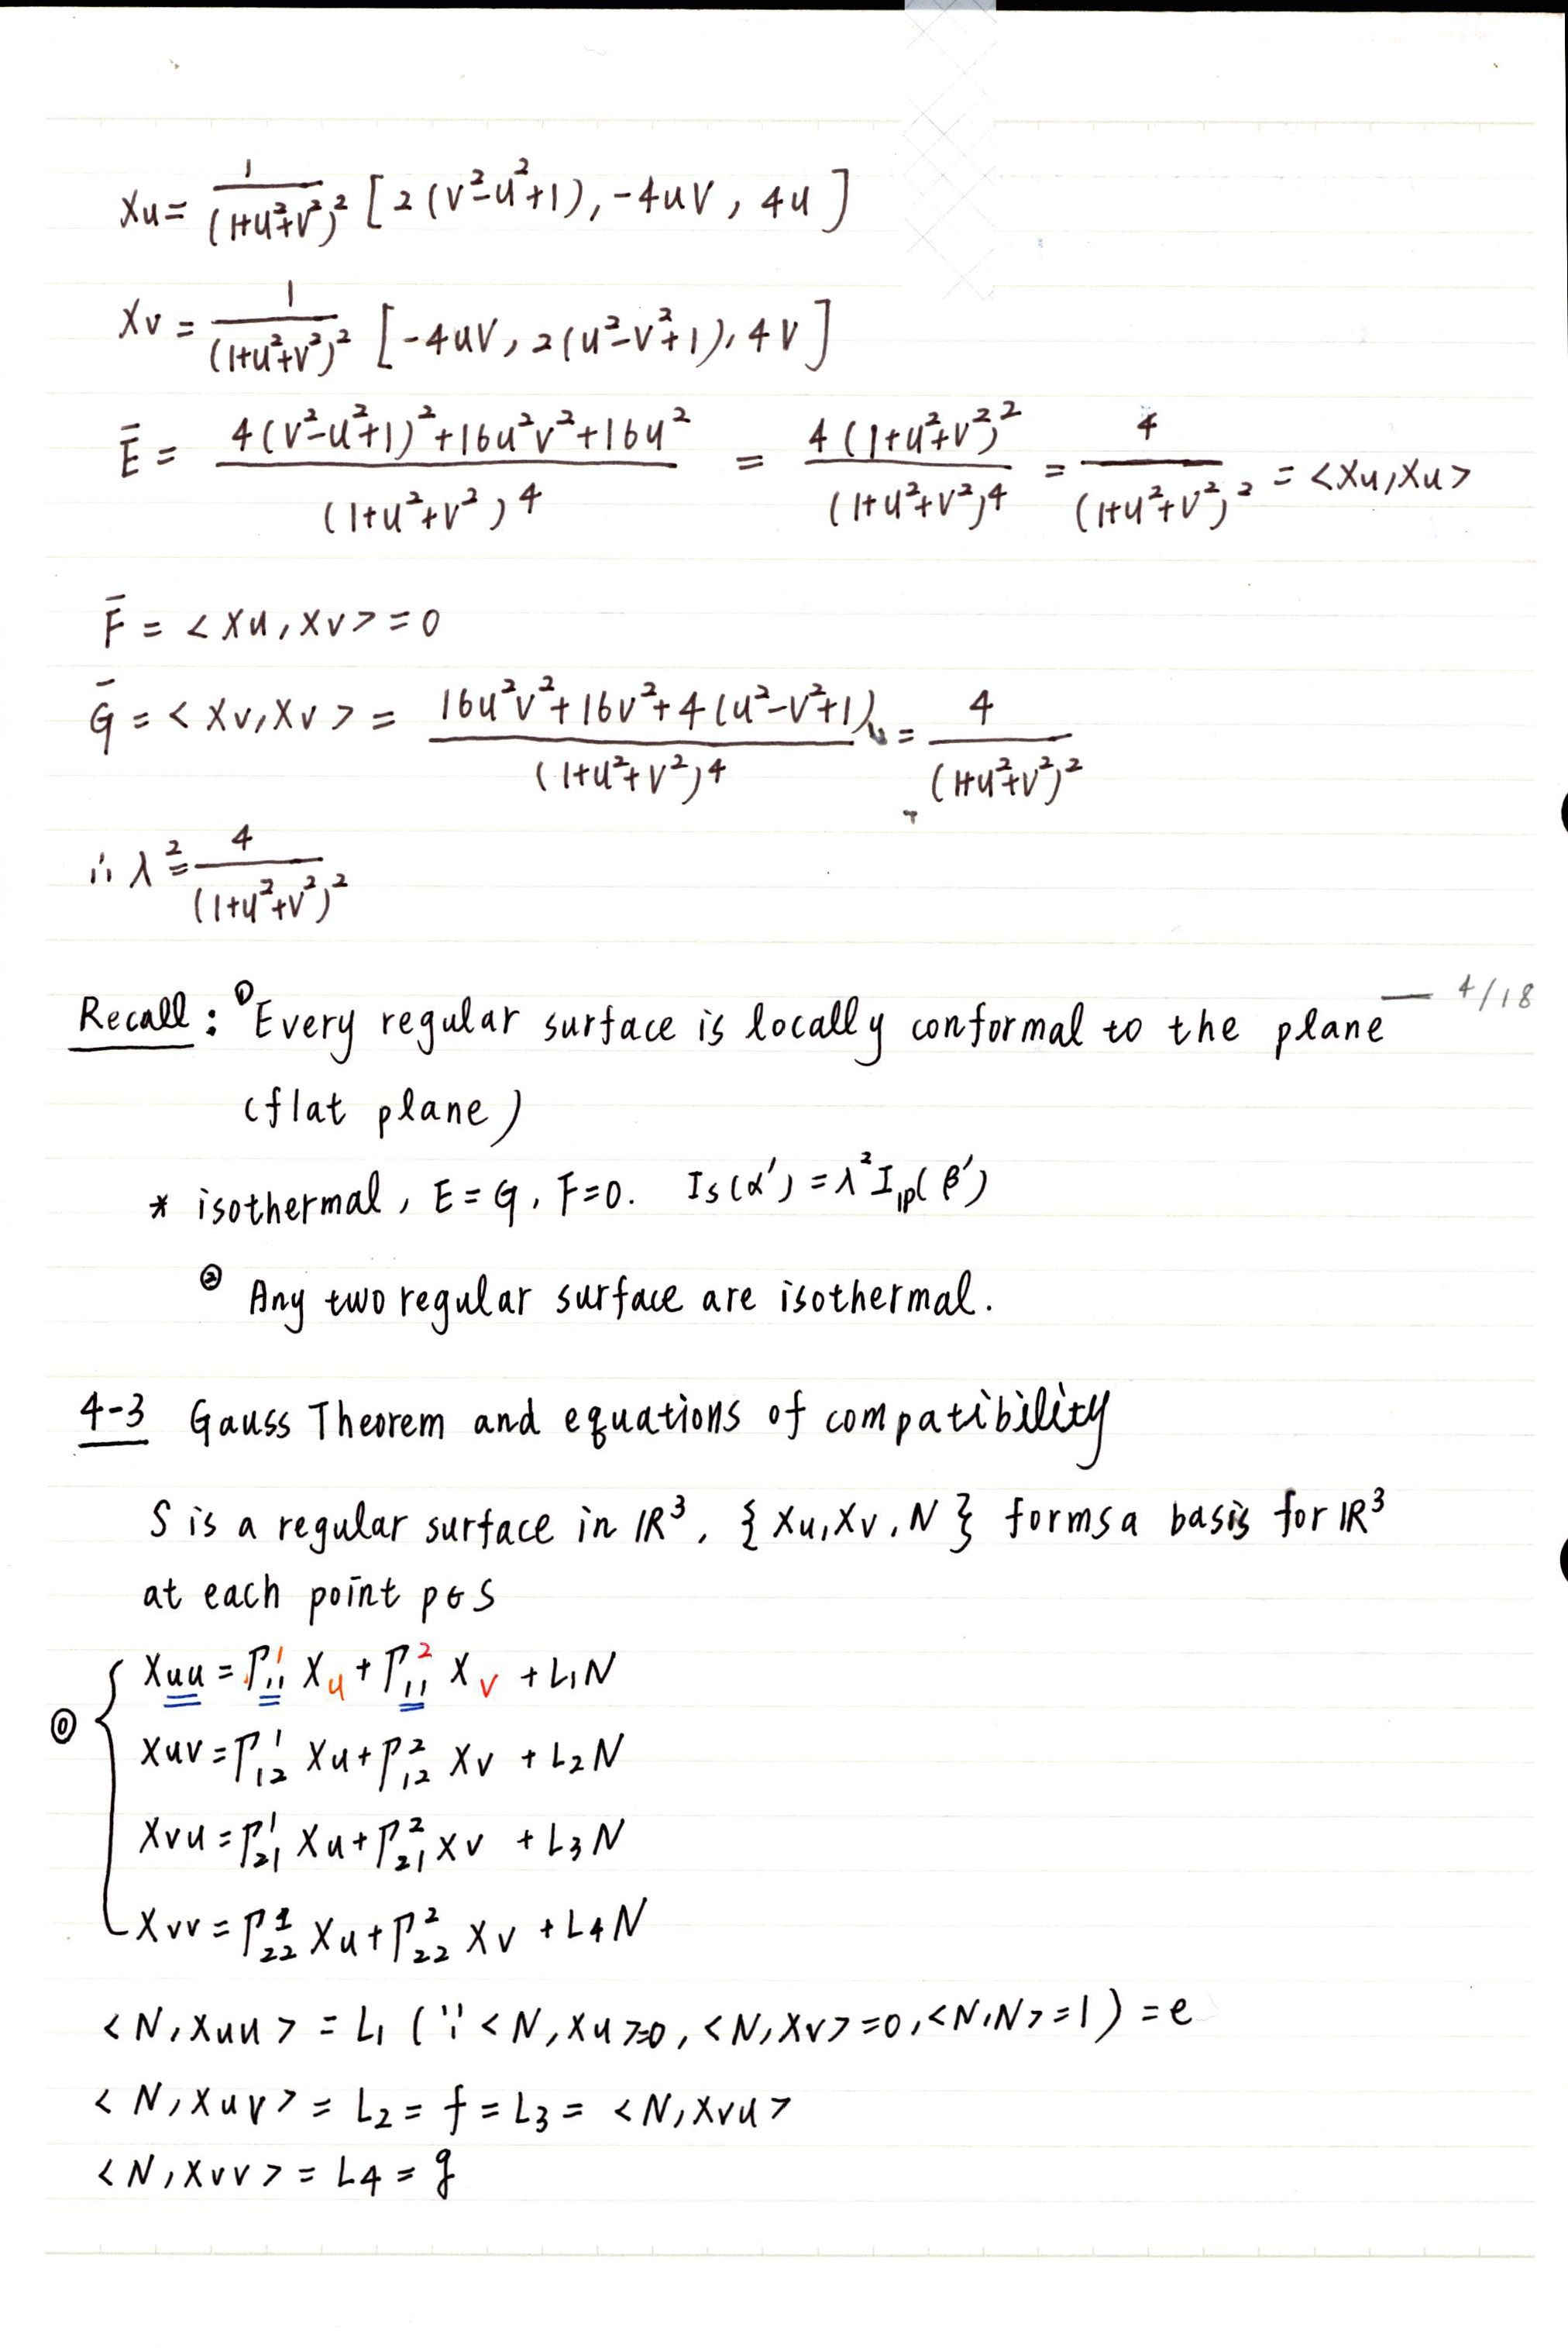 Xu = 1/(1+u²+v²)² [2(v²-u²+1), -4uv, 4u]
Xv = 1/(1+u²+v²)² [-4uv, 2(u²-v²+1), 4v]
Ē = (4(v²-u²+1)²+16u²v²+16u²)/(1+u²+v²)⁴ = 4(1+u²+v²)²/(1+u²+v²)⁴ = 4/(1+u²+v²)² = <Xu, Xu>
F̄ = <Xu, Xv> = 0
Ḡ = <Xv, Xv> = (16u²v²+16v²+4(u²-v²+1))/(1+u²+v²)⁴ = 4/(1+u²+v²)²
∴ λ² = 4/(1+u²+v²)²
— 4/18
Recall : ① Every regular surface is locally conformal to the plane
(flat plane)
* isothermal, E = G, F=0. Is(α') = λ² I_ℙ(β')
② Any two regular surface are isothermal.
4-3 Gauss Theorem and equations of compatibility
S is a regular surface in ℝ³, {Xu, Xv, N} forms a basis for ℝ³
at each point p∈S
Xuu = Γ₁₁¹ Xu + Γ₁₁² Xv + L₁N
⓪ Xuv = Γ₁₂¹ Xu + Γ₁₂² Xv + L₂N
Xvu = Γ₂₁¹ Xu + Γ₂₁² Xv + L₃N
Xvv = Γ₂₂¹ Xu + Γ₂₂² Xv + L₄N
<N, Xuu> = L₁ (∵ <N, Xu>=0, <N, Xv>=0, <N,N>=1) = e
<N, Xuv> = L₂ = f = L₃ = <N, Xvu>
<N, Xvv> = L₄ = g